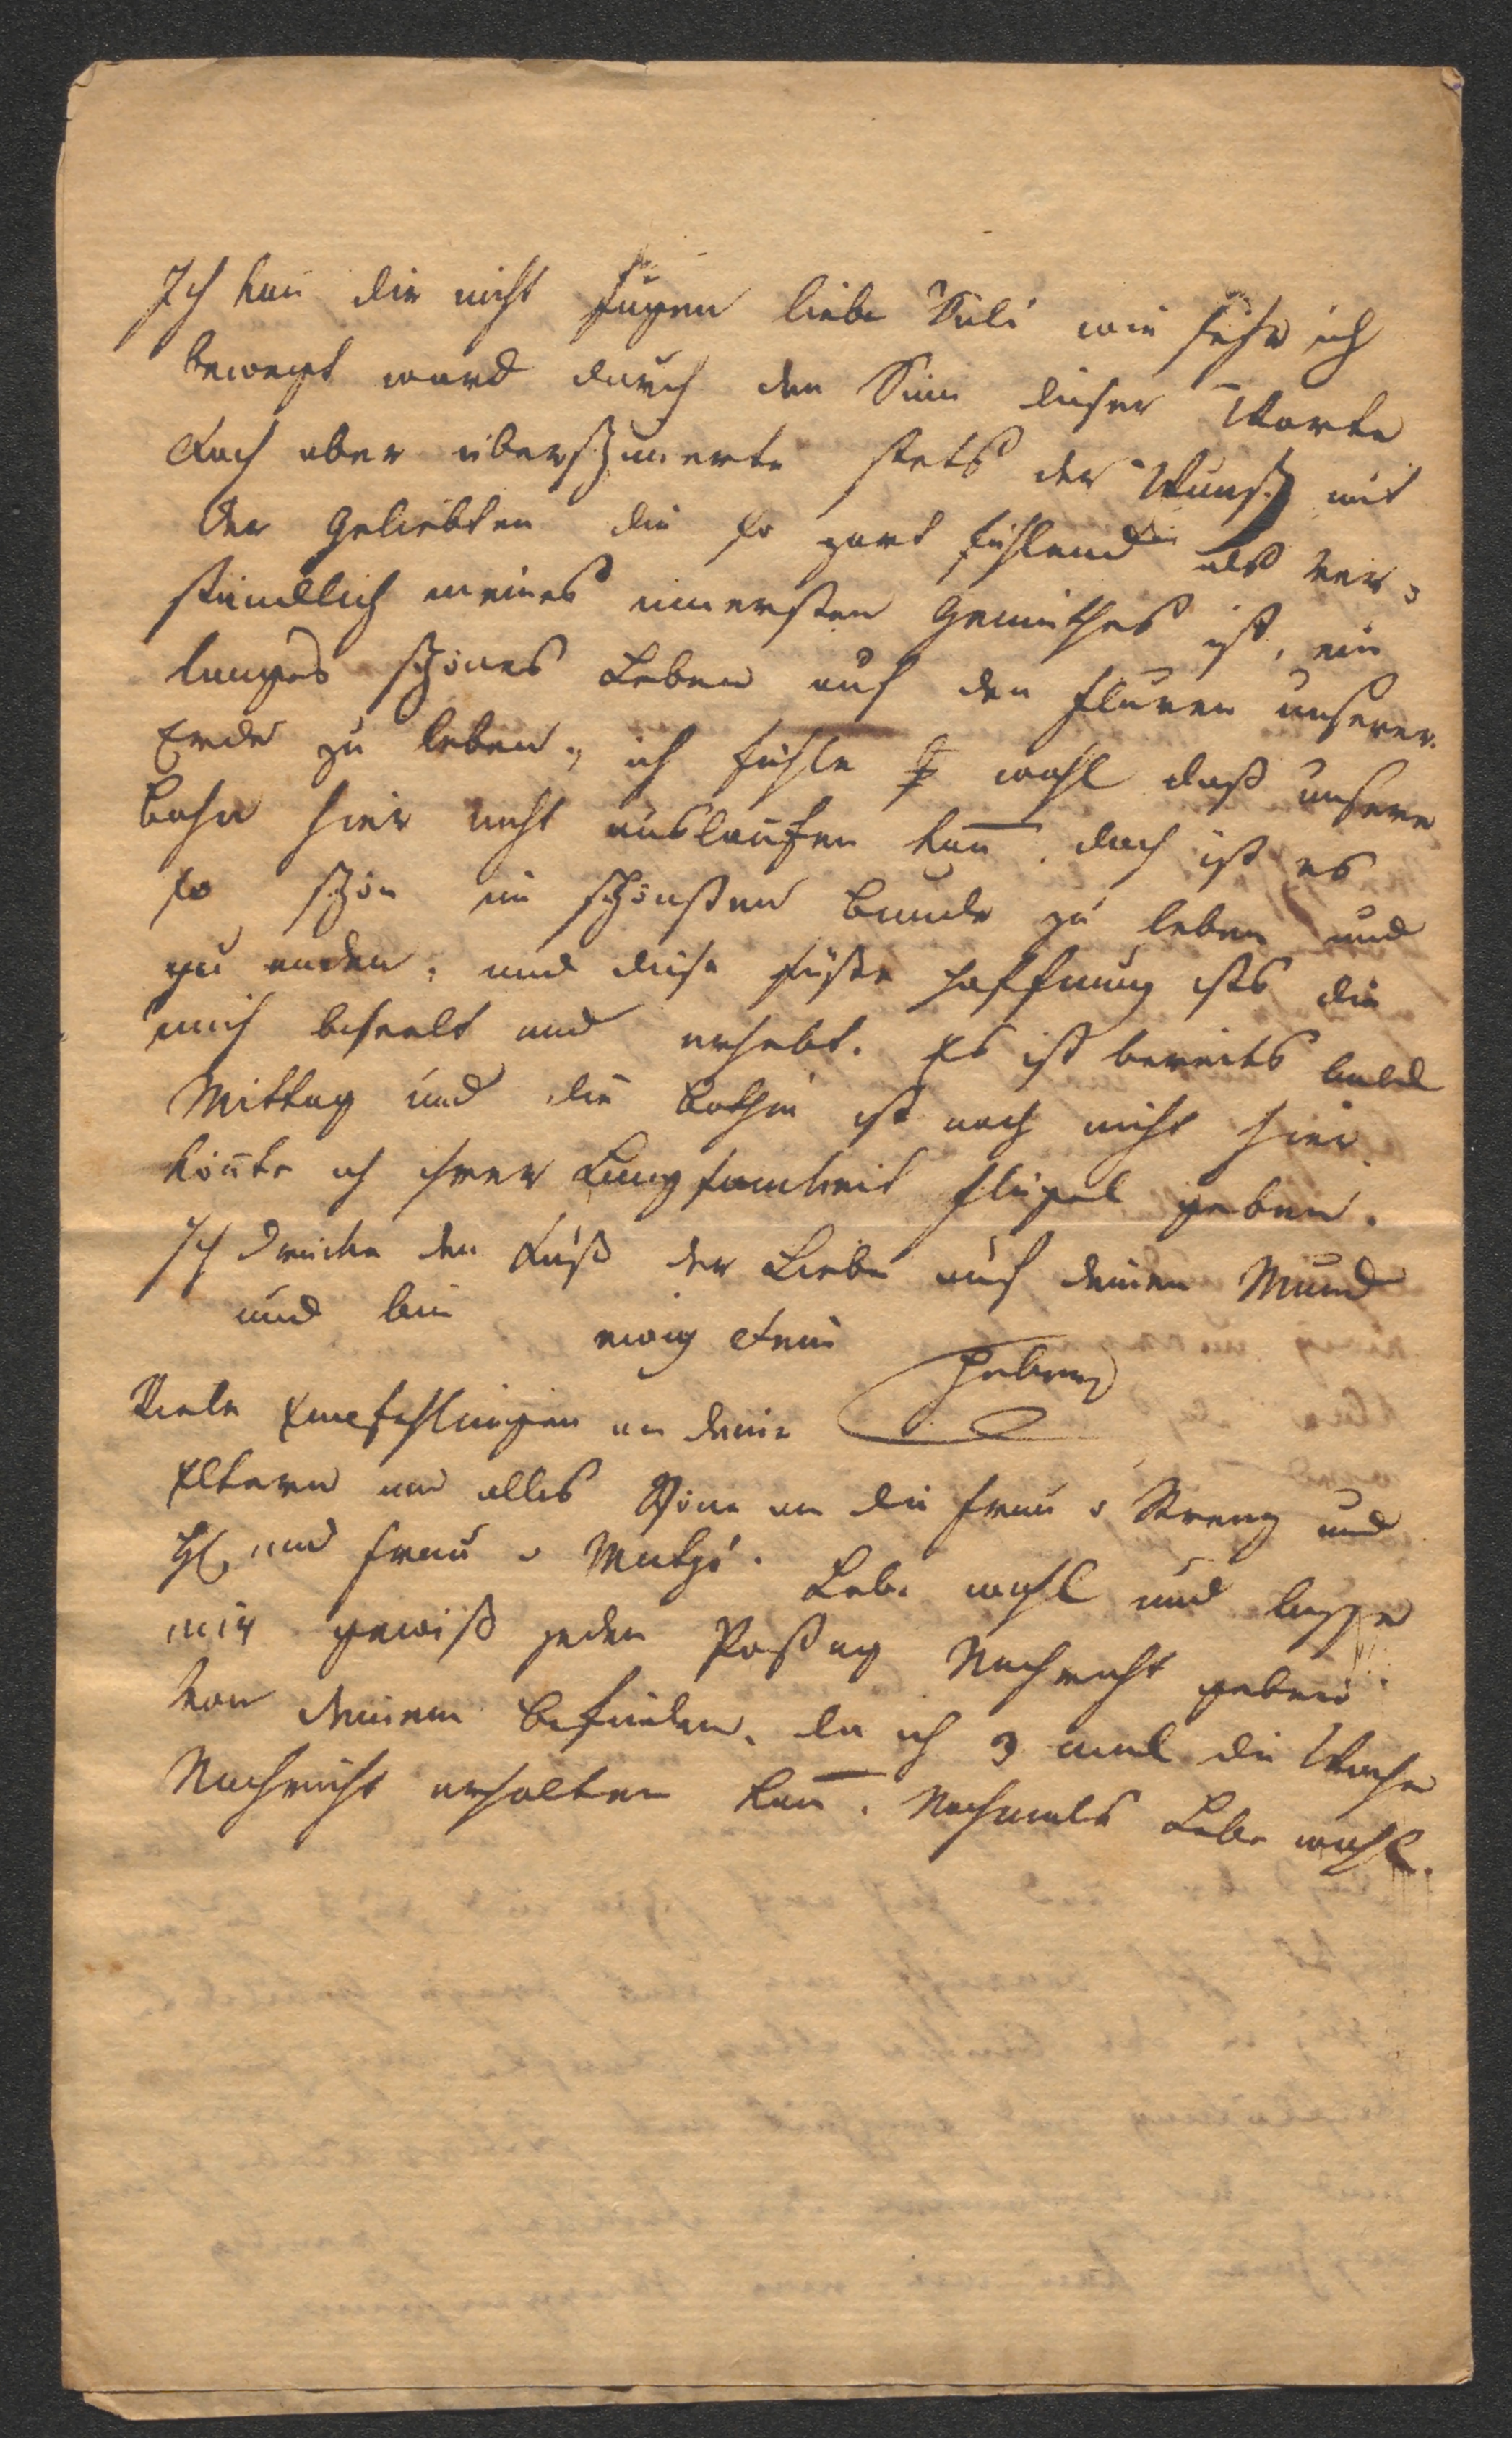 Ich kan̄ dir nicht sagen liebe Suli wie sehr ich
bewegt ward durch den Sinn dieser Worte
doch aber überschim̄erte stets der Wunsch mit
der Geliebten die so zart fühlend als ver=
ständlich meines innersten Gemüthes ist, ein
langes schönes Leben auf den Fluren unserer
Erde zu leben, ich fühle wohl daß unsere
Bahn hier nicht auslaufen kan̄. doch ist es
so schön im schönsten Bunde zu leben und
zu enden, und diese süsse Hoffnung ists die
mich beseelt und erhebt. Es ist bereits bald
Mittag und die Bothin ist noch nicht hier
kön̄te ich ihrer Langsamkeit Flügel geben.
Ich drücke den Kuß der Liebe auf deinen Mund
und bin ewig dein
Viele Empfehlungen an deine
Eltern und alles Schöne an die Frau v Streng und
H und Frau v Lebe wohl und lasse
mir gewiß jeden Postag Nachricht geben
von deinem Befinden, da ich 3 mal die Woche
Nachricht erhalten kan̄. Nochmals Lebe wohl.